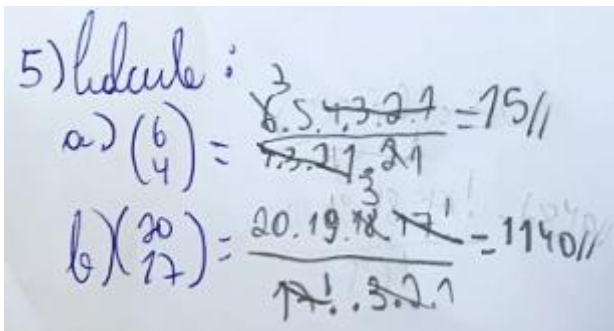 5) Calcule:
a) (6 4) = 6.5.4.3.2.1 / 4.3.2.1.2.1 = 15//
b) (20 17) = 20.19.18.17! / 17!.3.2.1 = 1140//